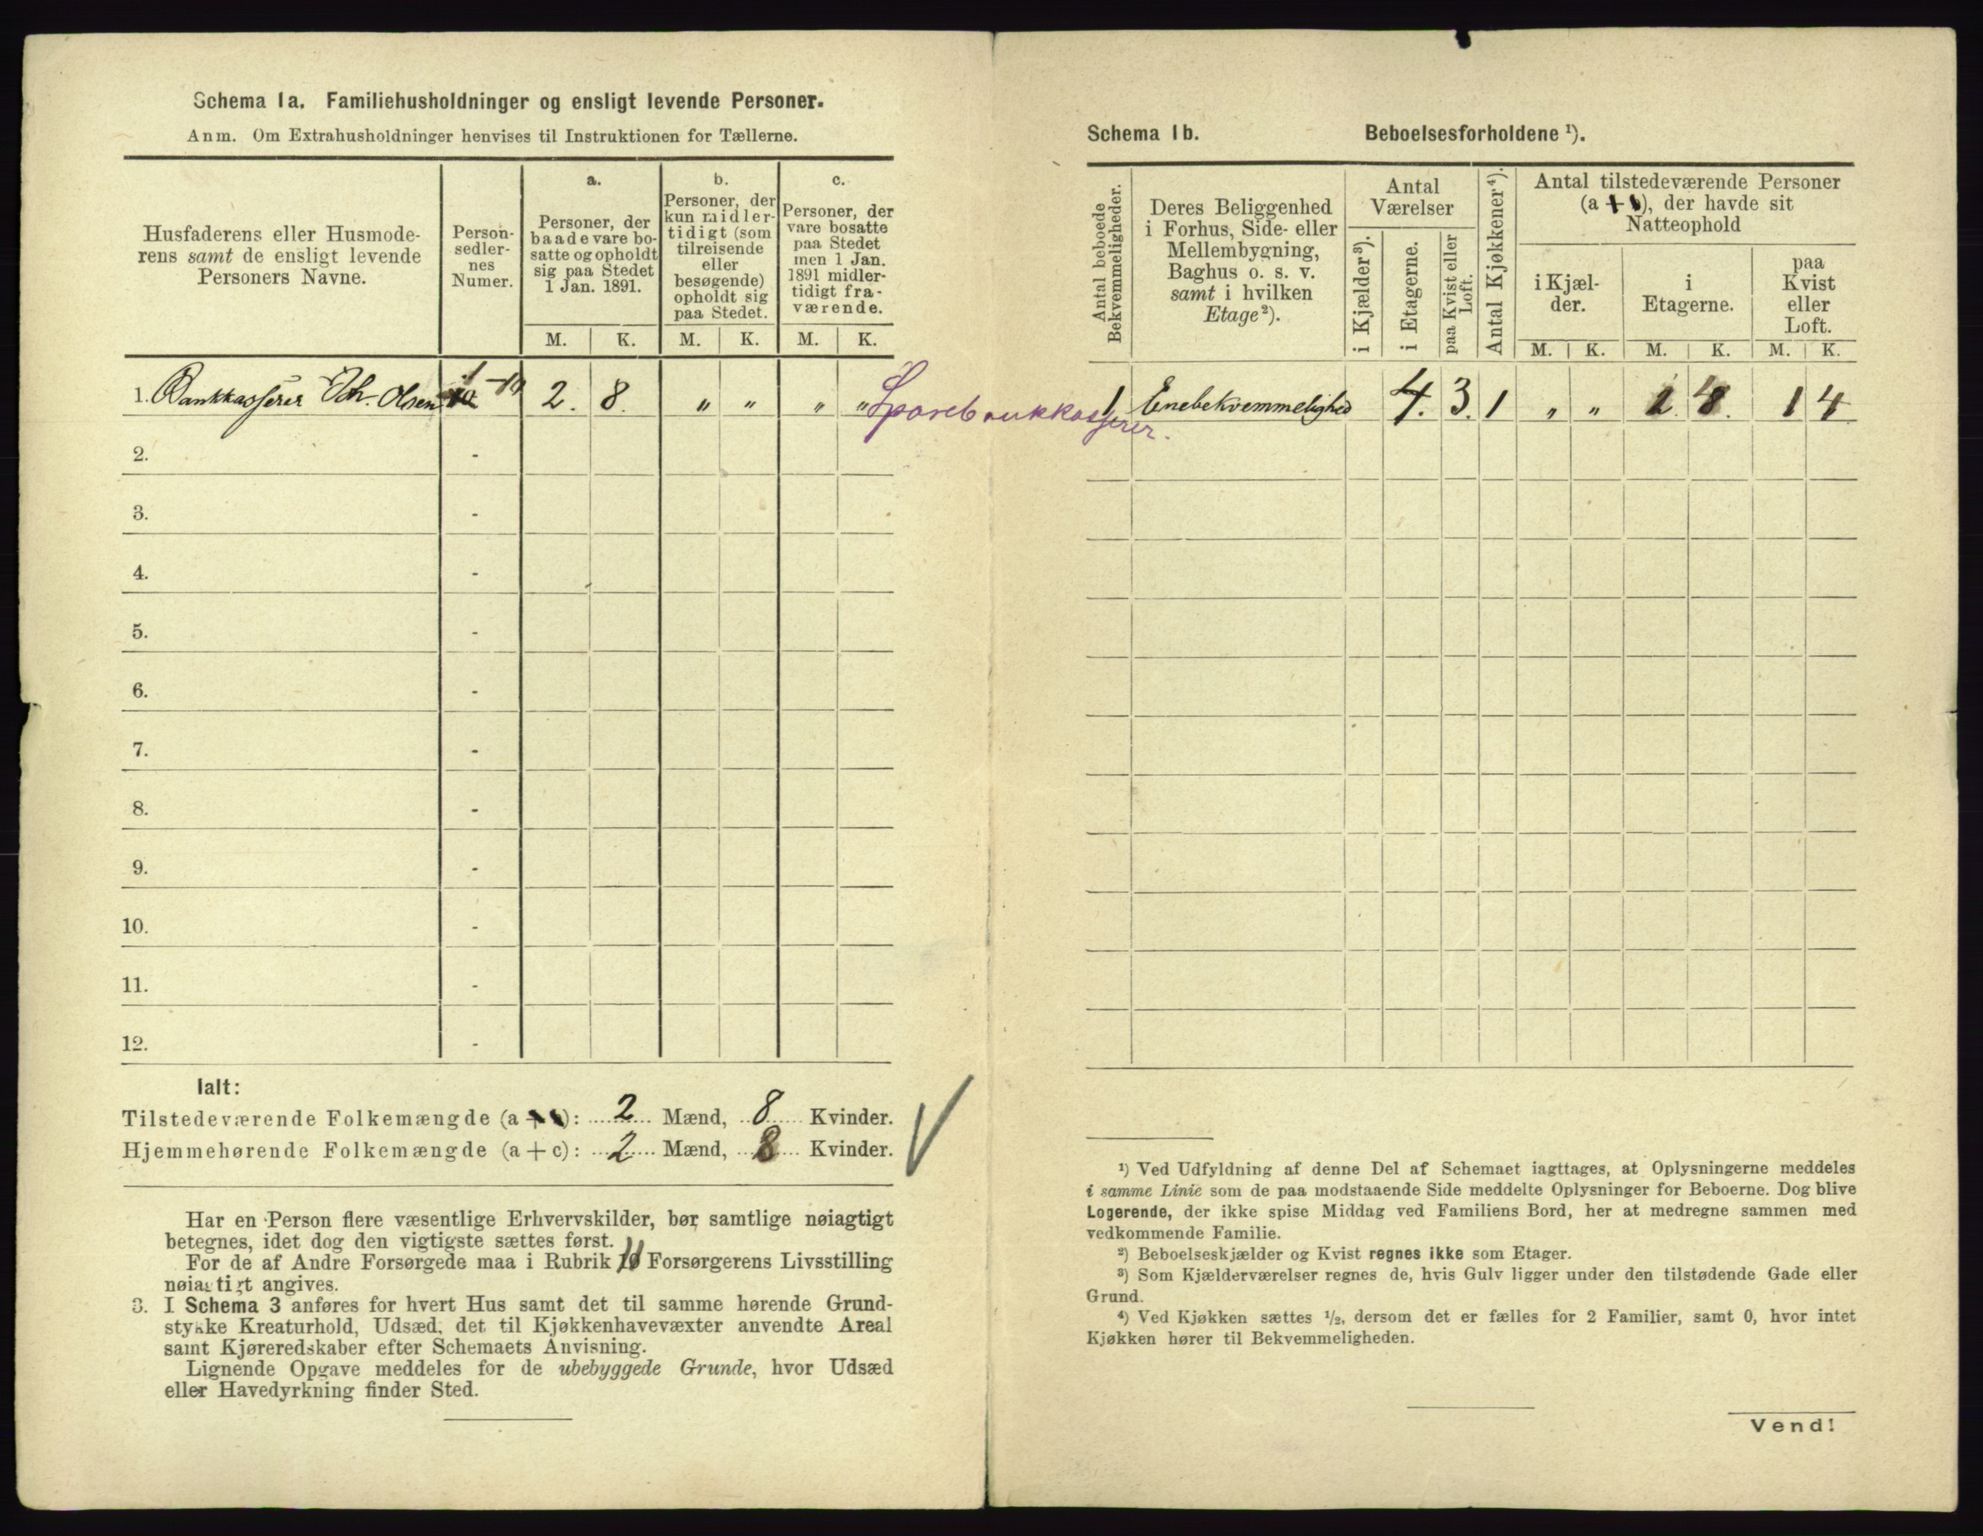 Schema 1a. Familiehusholdninger og ensligt levende Personer.
Anm. Om Extrahusholdninger henvises til Instruktionen for Tællerne.
Husfaderens eller Husmode-
rens samt de ensligt levende
Personers Navne.
Person-
sedler-
nes
Numer.
a.
Personer, der
baade vare bo-
satte og opholdt
sig paa Stedet
1 Jan. 1891.
b.
Personer, der
kun midler-
tidigt (som
tilreisende
eller
besøgende)
opholdt sig
paa Stedet.
c.
Personer, der
vare bosatte
paa Stedet
men 1 Jan.
1891 midler-
tidigt fra-
værende.
M. K. M. K. M. K.
1. Bankkasserer Joh. Olsen 1 - 10 2. 8. „ „ „ „ Sparebankkasserer.
2. -
3. -
4. -
5. -
6. -
7. -
8. -
9. -
10. -
11. -
12. -
Ialt:
Tilstedeværende Folkemængde (a + b): 2 Mænd, 8 Kvinder.
Hjemmehørende Folkemængde (a + c): 2 Mænd, 8 Kvinder.
Har en Person flere væsentlige Erhvervskilder, bør samtlige nøiagtigt
betegnes, idet dog den vigtigste sættes først.
For de af Andre Forsørgede maa i Rubrik 11 Forsørgerens Livsstilling
nøiagtigt angives.
3. I Schema 3 anføres for hvert Hus samt det til samme hørende Grund-
stykke Kreaturhold, Udsæd, det til Kjøkkenhavevæxter anvendte Areal
samt Kjøreredskaber efter Schemaets Anvisning.
Lignende Opgave meddeles for de ubebyggede Grunde, hvor Udsæd
eller Havedyrkning finder Sted.
Schema 1b. Beboelsesforholdene ¹).
Antal beboede
Bekvemmeligheder.
Deres Beliggenhed
i Forhus, Side- eller
Mellembygning,
Baghus o. s. v.
samt i hvilken
Etage²).
Antal
Værelser
i Kjælder³).
i Etagerne.
paa Kvist eller
Loft.
Antal Kjøkkener⁴).
Antal tilstedeværende Personer
(a + b), der havde sit
Natteophold
i Kjæl-
der.
i
Etagerne.
paa
Kvist
eller
Loft.
M. K. M. K. M. K.
1 Enebekvemmelighed 4. 3. 1 „ „ 1. 4. 1 4
¹) Ved Udfyldning af denne Del af Schemaet iagttages, at Oplysningerne meddeles
i samme Linie som de paa modstaaende Side meddelte Oplysninger for Beboerne. Dog blive
Logerende, der ikke spise Middag ved Familiens Bord, her at medregne sammen med
vedkommende Familie.
²) Beboelseskjælder og Kvist regnes ikke som Etager.
³) Som Kjælderværelser regnes de, hvis Gulv ligger under den tilstødende Gade eller
Grund.
⁴) Ved Kjøkken sættes ½, dersom det er fælles for 2 Familier, samt 0, hvor intet
Kjøkken hører til Bekvemmeligheden.
Vend!